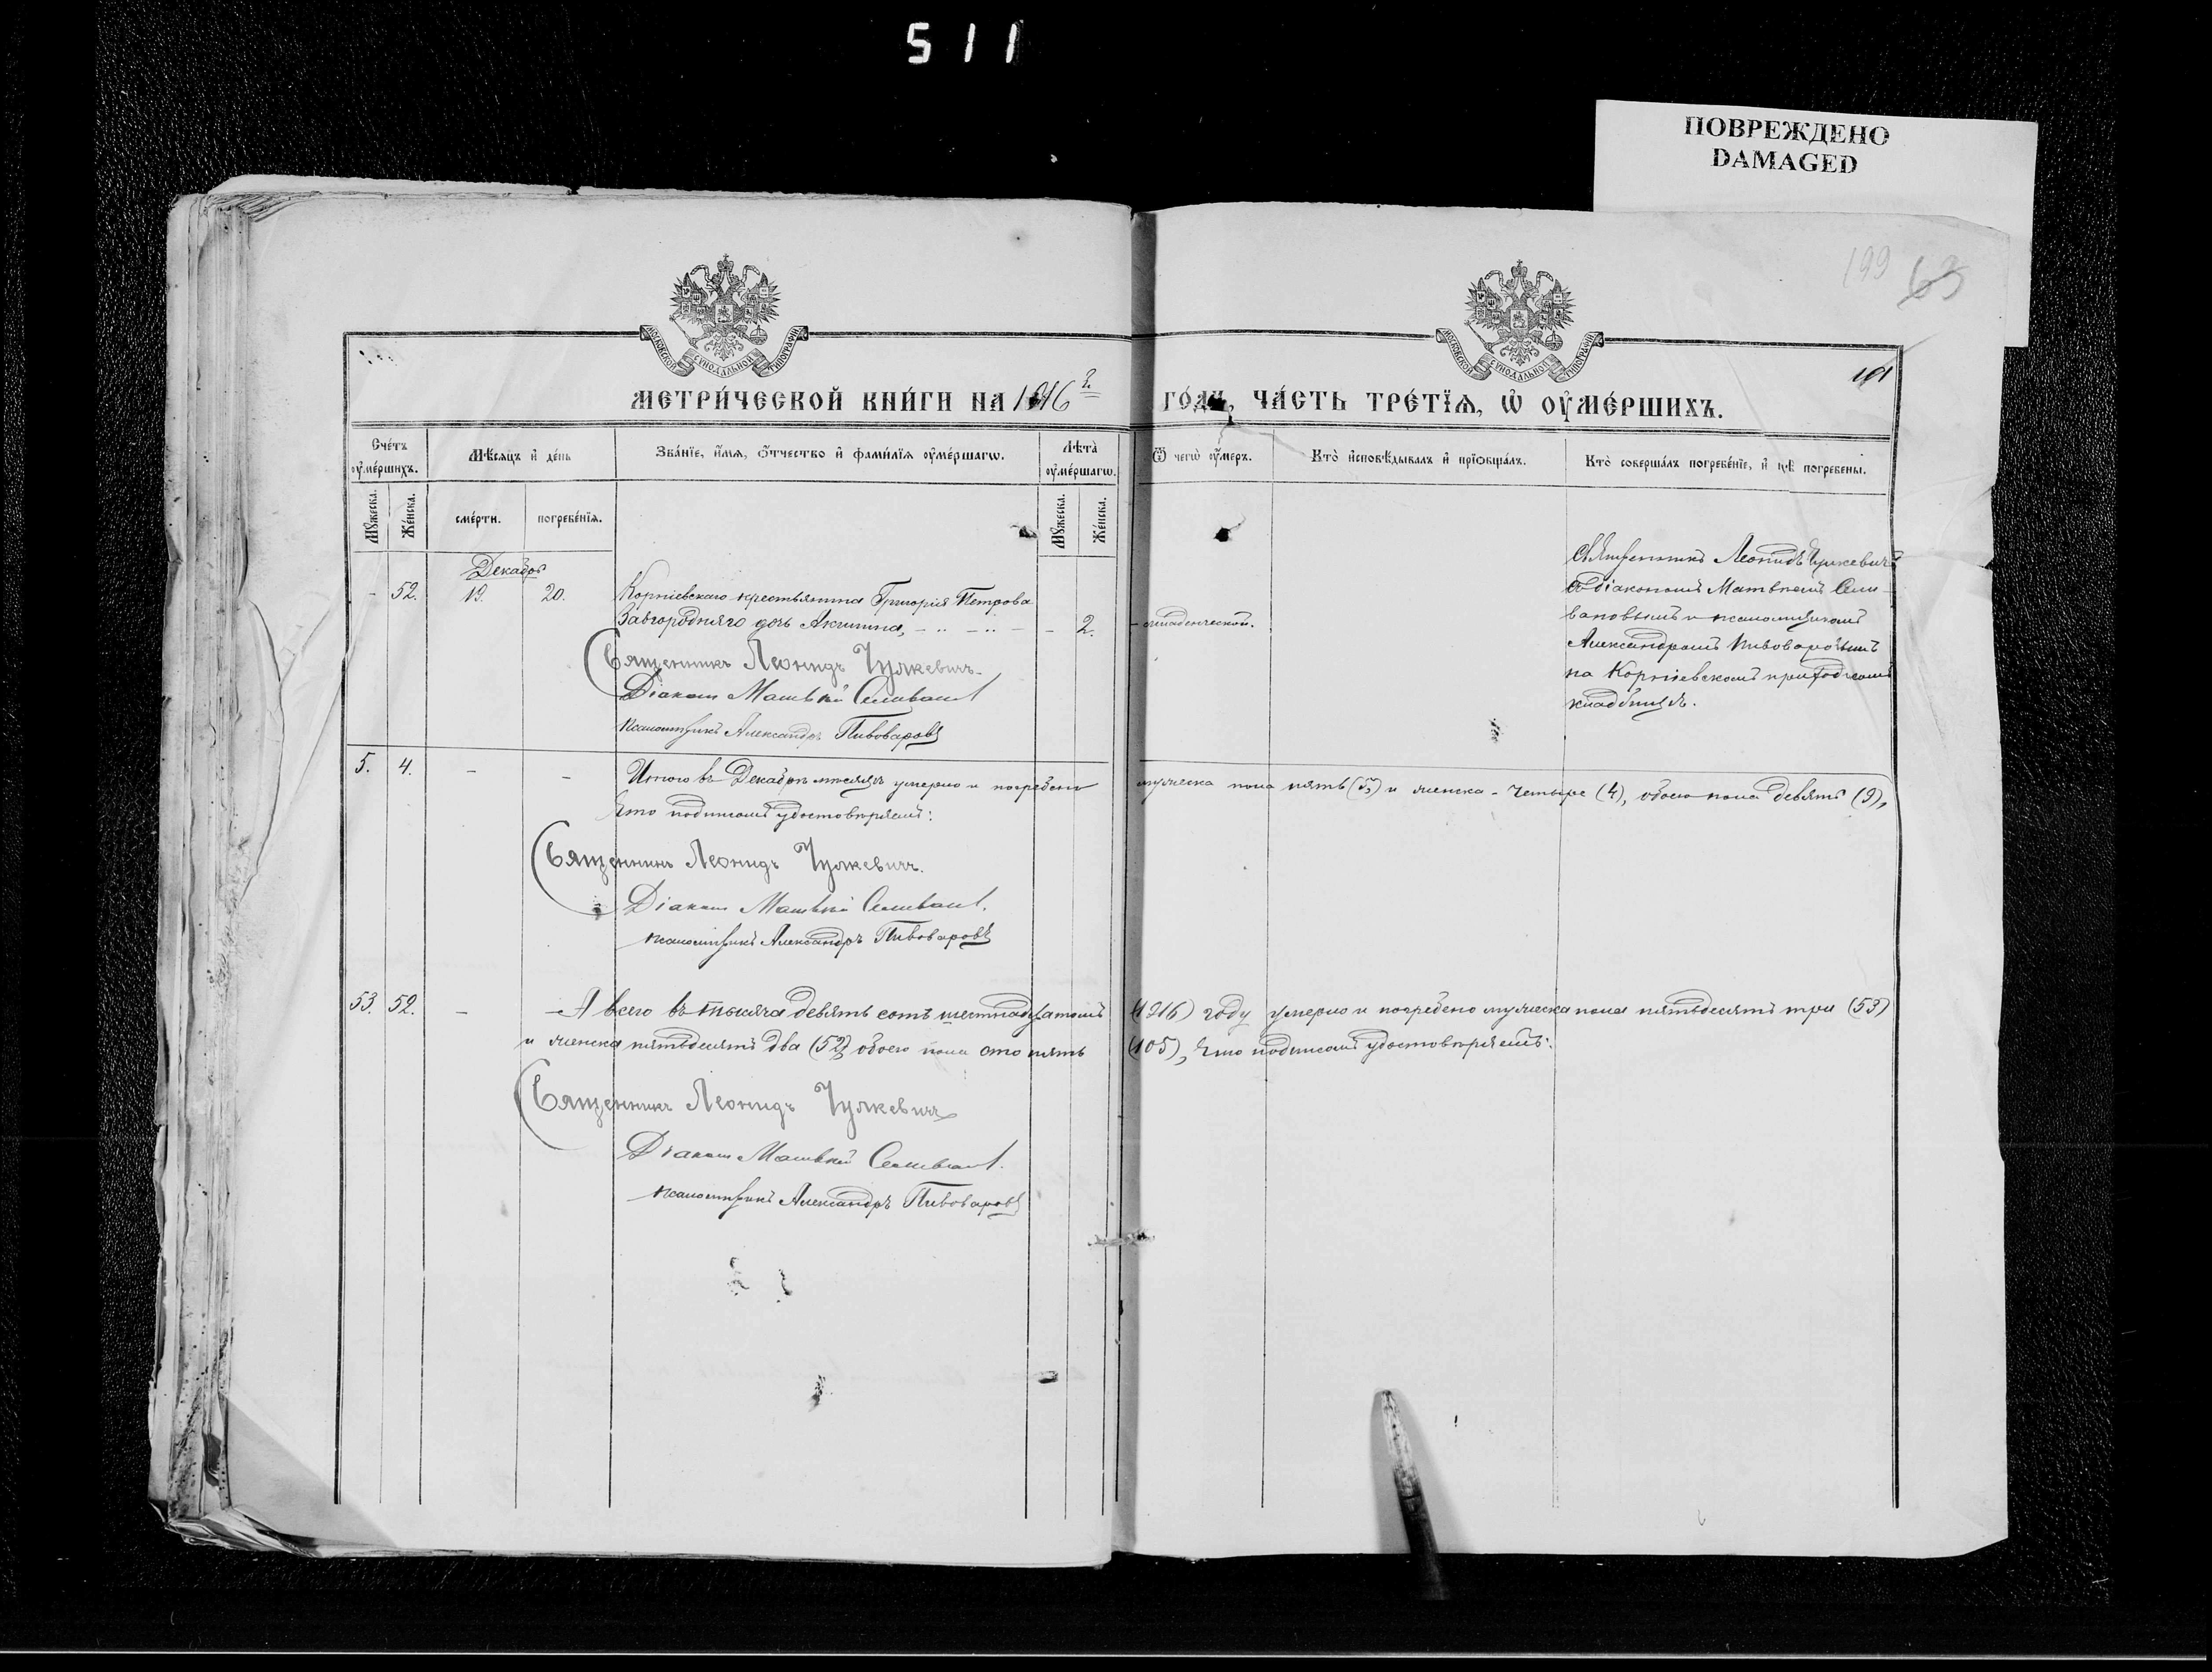 511
ПОВРЕЖДЕНО
DAMAGED
199 63
МОСКОВСКОЙ СѴНОДАЛЬНОЙ ТИПОГРАФІИ
МОСКОВСКОЙ СѴНОДАЛЬНОЙ ТИПОГРАФІИ
МЕТРИ́ЧЕСКОЙ КНИ́ГИ НА 1916 г. ГО́ДЪ, ЧА́СТЬ ТРЕ́ТЇѦ, Ѡ҆ ОУ҆МЕ́РШИХЪ.
Сче́тъ оу҆ме́ршихъ.
Мѣ́сяцъ и҆ де́нь
Зва́нїе, и҆́мѧ, ѻ҆́тчество и҆ фами́лїѧ оу҆ме́ршагѡ.
Лѣ́та оу҆ме́ршагѡ.
Ѿ чегѡ̀ оу҆́меръ.
Кто̀ и҆сповѣ́дывалъ и҆ прїѡбща́лъ.
Кто̀ соверша́лъ погребе́нїе, и҆ гдѣ̀ погребены.
Мꙋ́жеска.
Же́нска.
сме́рти.
погребе́нїѧ.
Мꙋ́жеска.
Же́нска.
Декабрь
- 52. 19. 20. Корніевскаго крестьянина Григорія Петрова
Завгородняго дочь Акилина, - 2. младенческой.
Священникъ Леонидъ Чулкевичъ
Діаконъ Матвѣй Селивановъ
Псаломщикъ Александръ Пивоваровъ
Священникъ Леонидъ Чулкевичъ
съ діакономъ Матвѣемъ Сели-
вановымъ и псаломщикомъ
Александромъ Пивоваровымъ
на Корніевскомъ приходскомъ
кладбищѣ.
5. 4. - - Итого въ Декабрѣ мѣсяцѣ умерло и погребено мужеска пола пять (5) и женска - четыре (4), обоего пола девять (9),
Что подписомъ удостовѣряемъ:
Священникъ Леонидъ Чулкевичъ.
Діаконъ Матвѣй Селивановъ.
псаломщикъ Александръ Пивоваровъ
53. 52. - - А всего въ тысяча девять сотъ шестнадцатомъ (1916) году умерло и погребено мужеска пола пятьдесятъ три (53)
и женска пятьдесятъ два (52), обоего пола сто пять (105), Что подписомъ удостовѣряемъ:
Священникъ Леонидъ Чулкевичъ
Діаконъ Матвѣй Селивановъ.
псаломщикъ Александръ Пивоваровъ